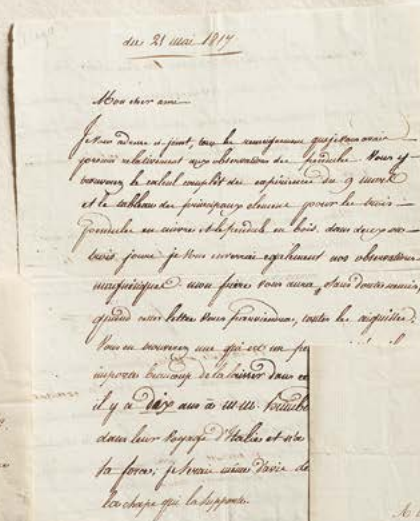 du 21 mai 1817
Mon cher ami
Je vous adresse ci-joint, tous les renseignemens que je vous avais
promis relativement aux observations du pendule. Vous y
trouverez le calcul complet des expériences du 9 mars
et le tableau des principaux élemens pour les trois
pendules en cuivre et le pendule en bois. dans deux ou
trois jours je vous enverrai également nos observations
magnétiques. mon frère vous aura, sans doute remis,
quand cette lettre vous parviendra, toutes les aiguilles.
Vous en trouverez une qui est un pe
importe beaucoup de la laisser dans ce
il y a dix ans à M.M. Humbo
dans leur voyage d'Italie et n'a
sa force; je serais même d'avis de
la chape qui la supporte.